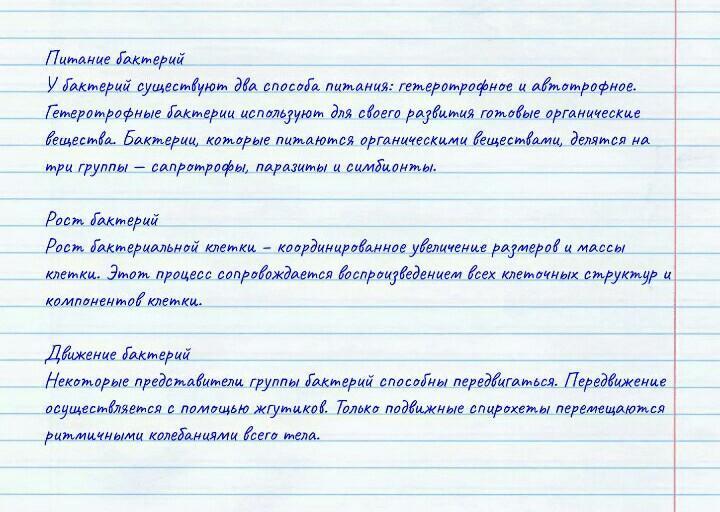 Питание бактерий
У бактерий существуют два способа питания: гетеротрофное и автотрофное.
Гетеротрофные бактерии используют для своего развития готовые органические
вещества. Бактерии, которые питаются органическими веществами, делятся на
три группы – сапротрофы, паразиты и симбионты.
Рост бактерий
Рост бактериальной клетки – координированное увеличение размеров и массы
клетки. Этот процесс сопровождается воспроизведением всех клеточных структур и
компонентов клетки.
Движение бактерий
Некоторые представители группы бактерий способны передвигаться. Передвижение
осуществляется с помощью жгутиков. Только подвижные спирохеты перемещаются
ритмичными колебаниями всего тела.